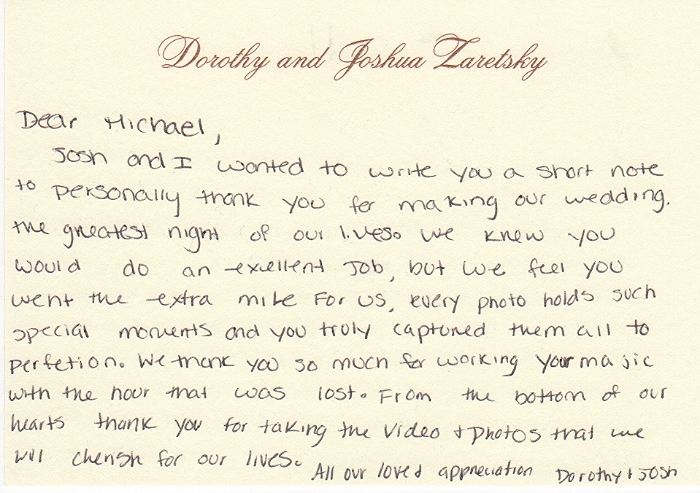 Dorothy and Joshua Zaretsky
Dear Michael,
Josh and I wanted to write you a short note
to personally thank you for making our wedding.
the greatest night of our lives. We knew you
would do an excellent Job, but we feel you
went the extra mile For us, every photo holds such
special moments and you truly captured them all to
perfetion. We thank you so much for working your majic
with the hour that was lost. From the bottom of our
hearts thank you for taking the video + photos that we
will cherish for our lives.
All our love + appreciation Dorothy + Josh